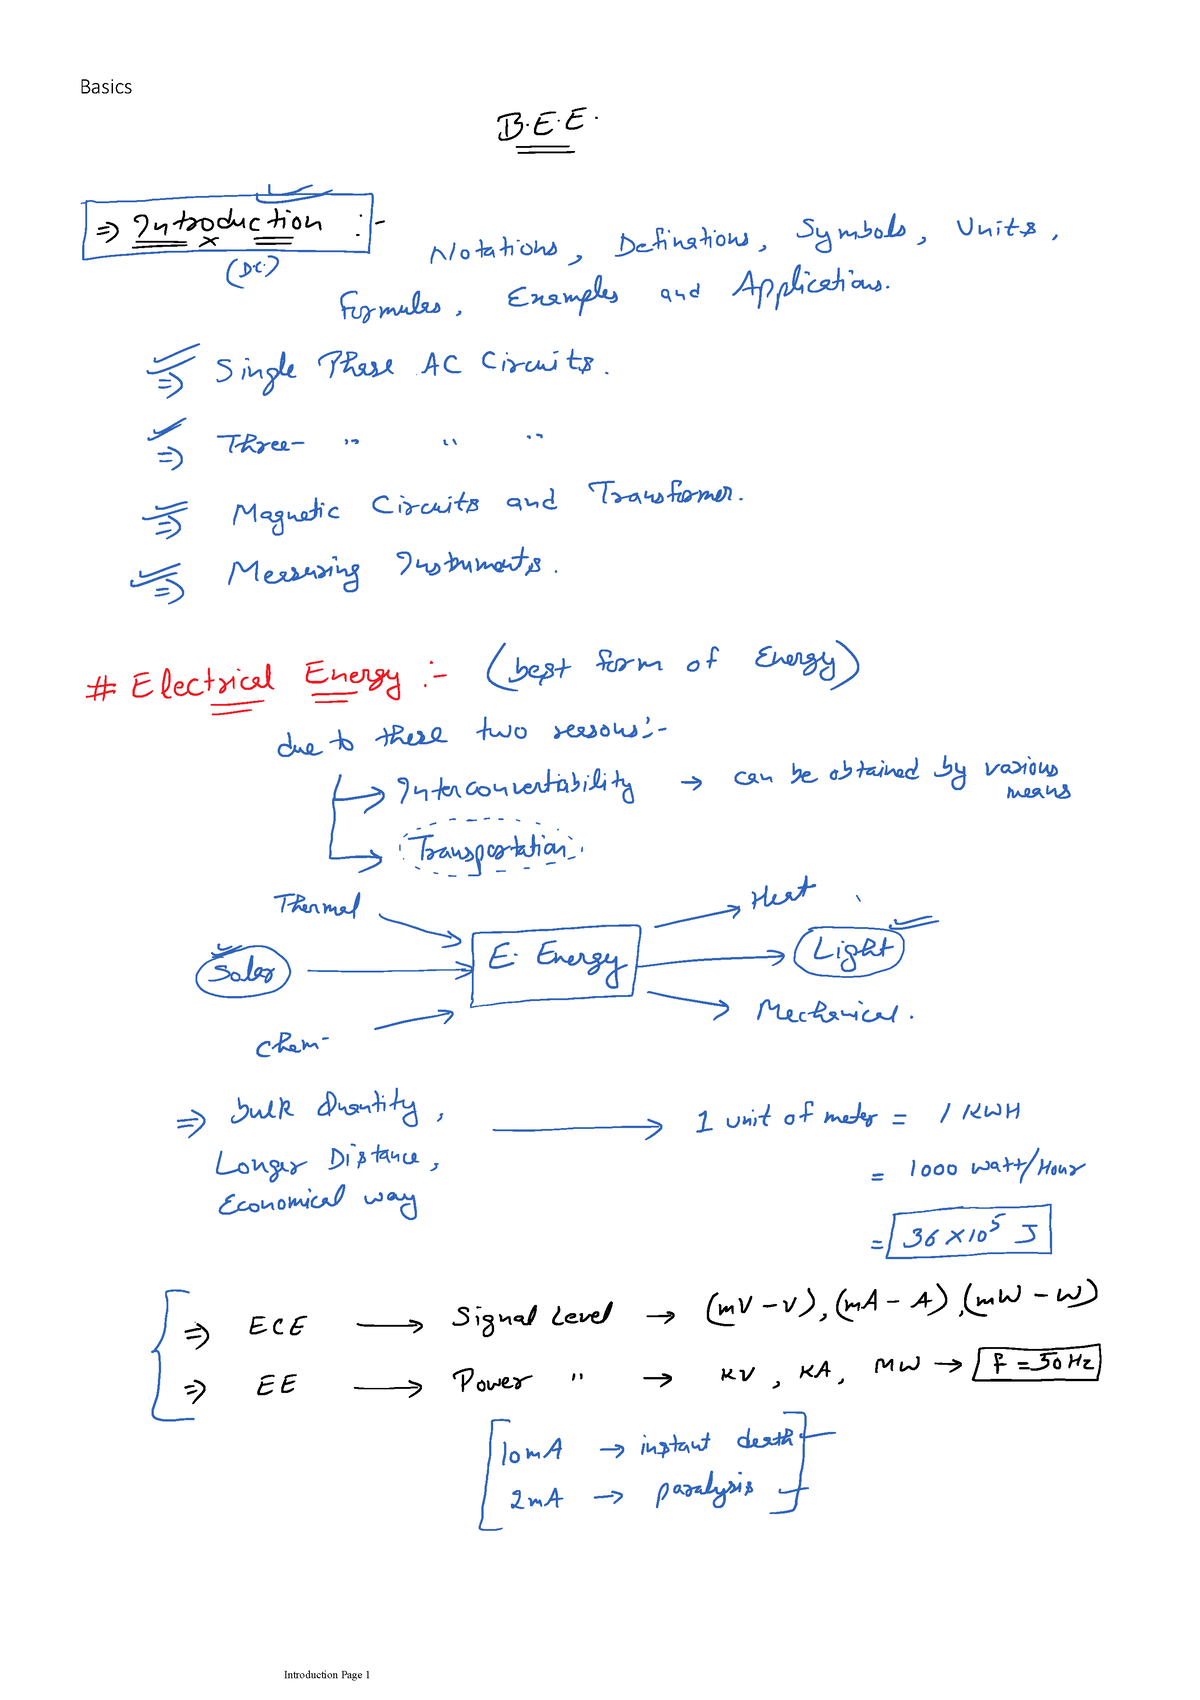 Basics
B.E.E.
⇒ Introduction :-
(D.C.)
Notations, Definations, Symbols, Units,
Formules, Examples and Applications.
⇒ Single Phase AC Circuits.
⇒ Three- " " "
⇒ Magnetic Circuits and Transformer.
⇒ Measuring Instruments.
# Electrical Energy :- (best form of Energy)
due to these two reasons:-
→ Interconvertability → can be obtained by various means
→ Transportation
Thermal
Heat
Solar
E. Energy
Light
Chem-
Mechanical.
⇒ bulk Quantity,
Longer Distance,
Economical way
→ 1 unit of meter = 1 KWH
= 1000 watt/Hour
= 36 x 10⁵ J
⇒ ECE → Signal Level → (mV - V), (mA - A), (mW - W)
⇒ EE → Power " → KV, KA, MW → f = 50 Hz
10mA → instant death
2mA → paralysis
Introduction Page 1